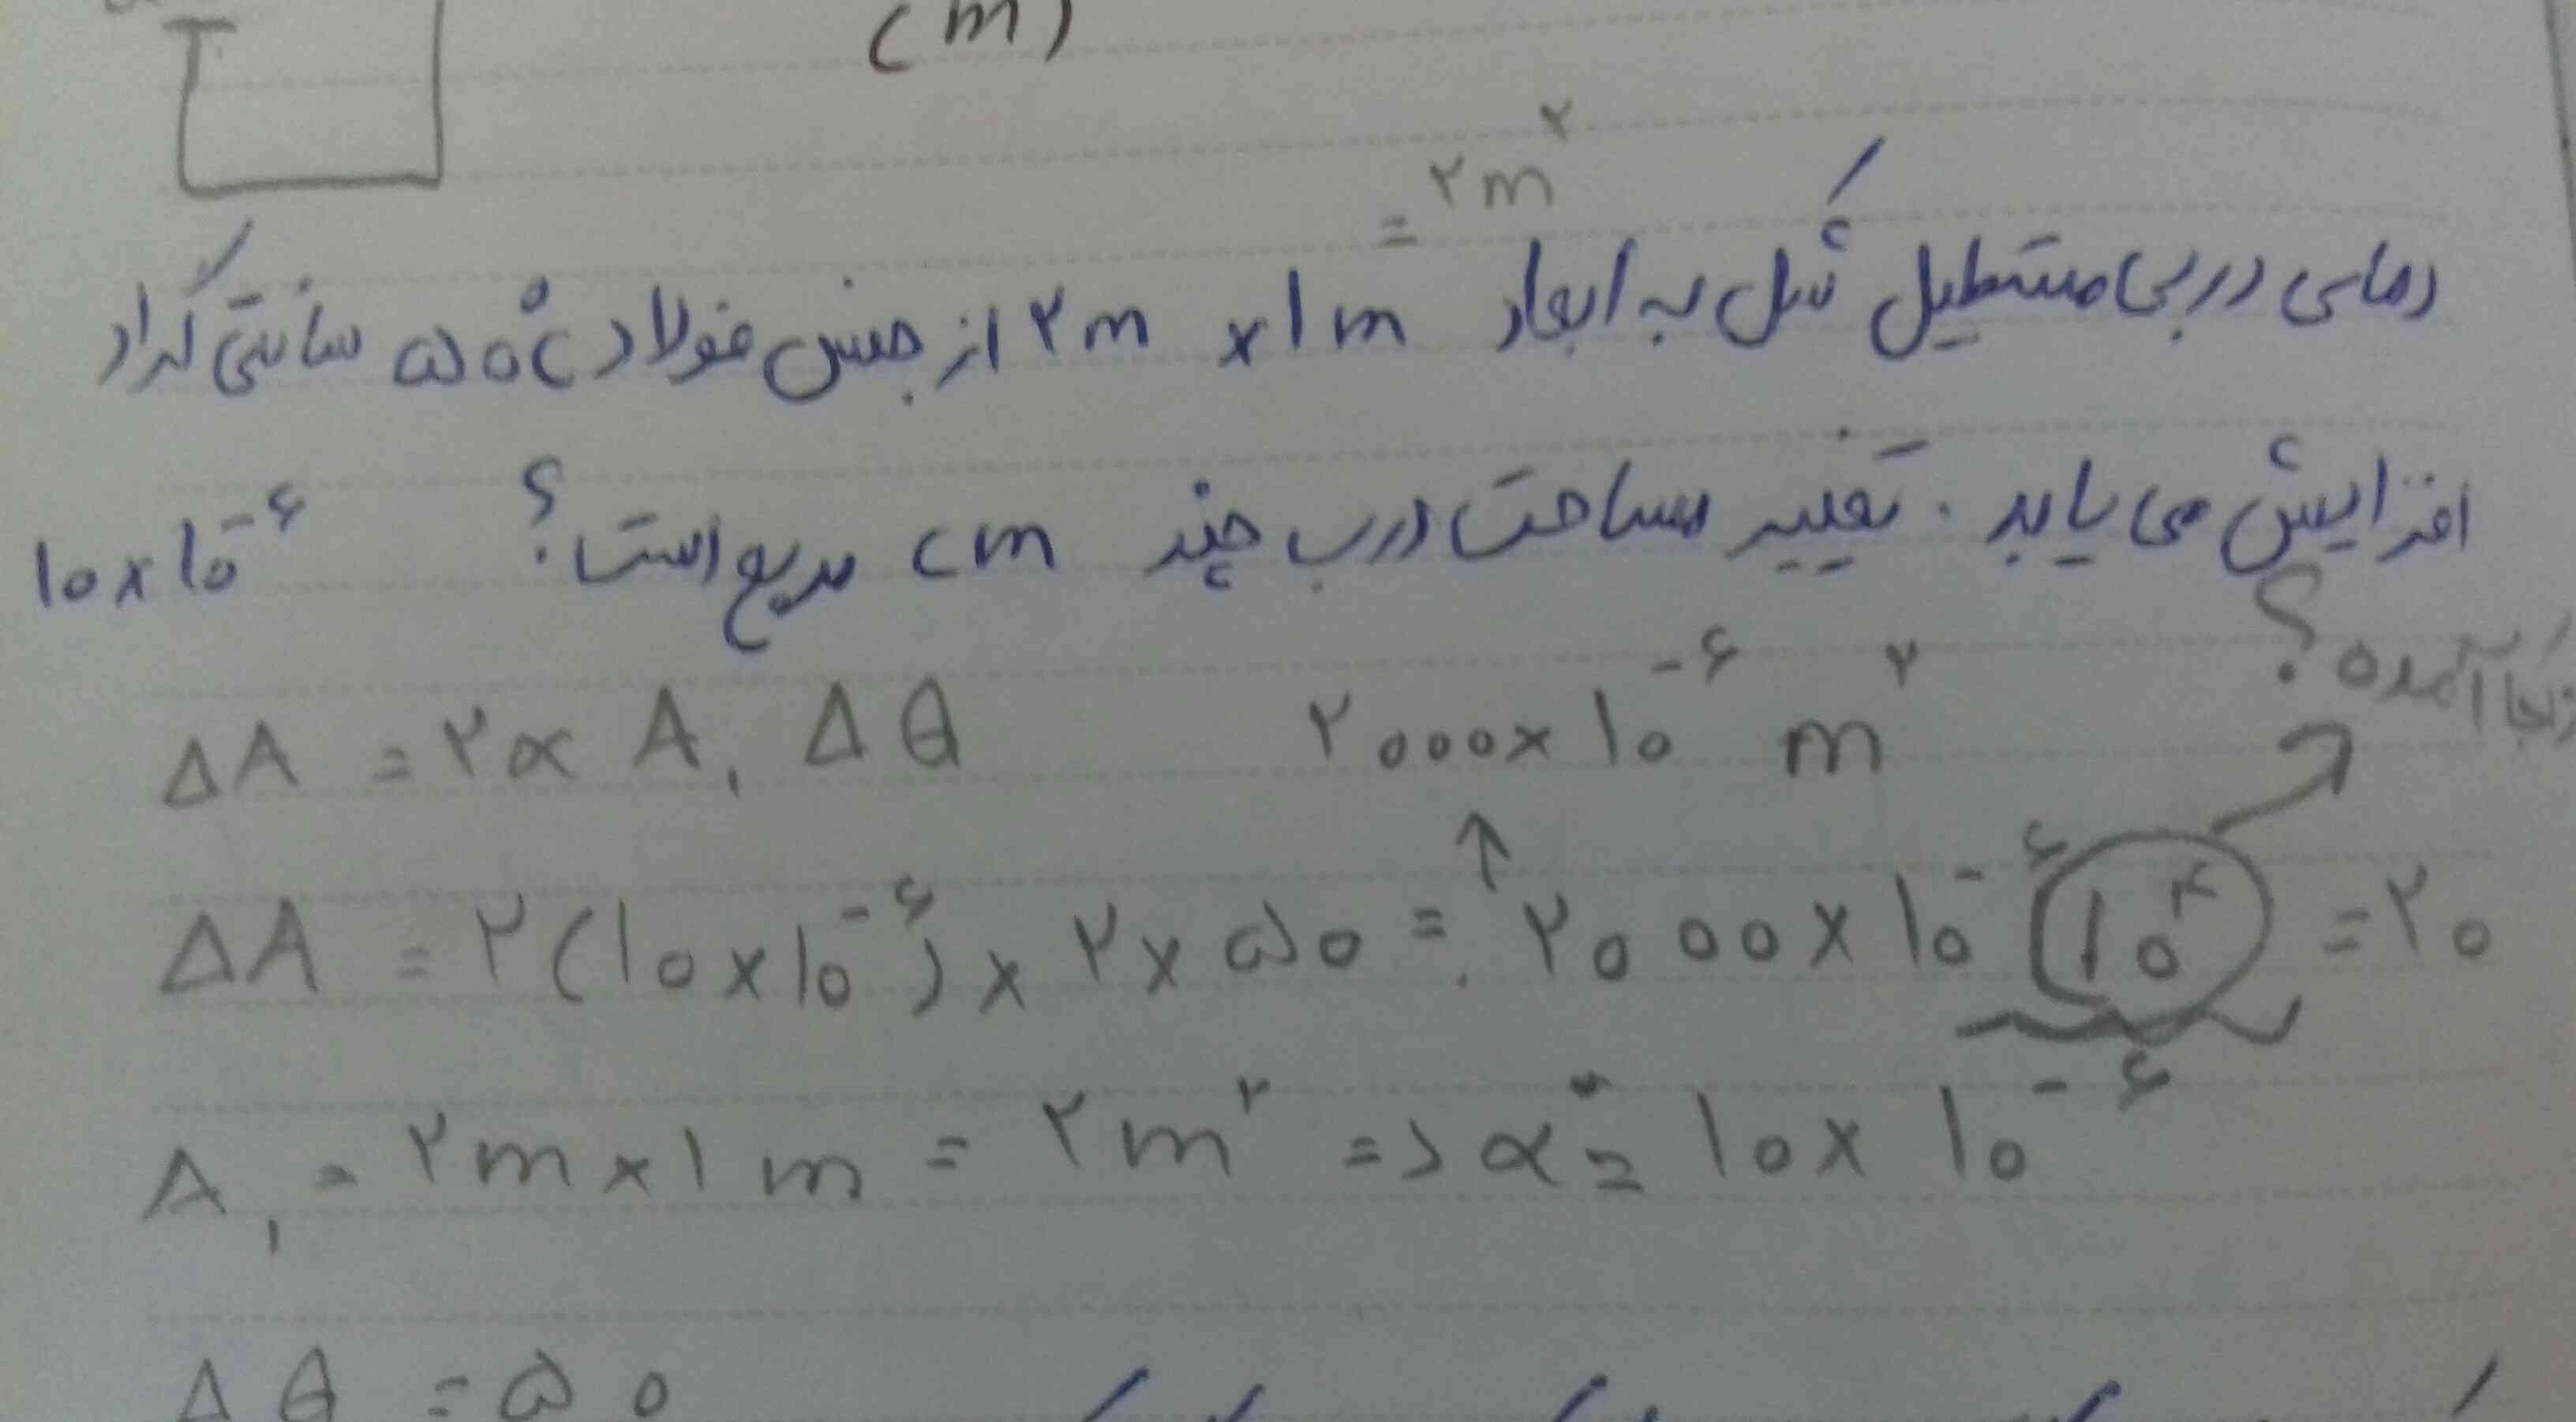 (m)
= ۲m²
دمای دربی مستطیل شکل به ابعاد ۲m × ۱m از جنس فولاد ۵۰°C سانتی گراد
افزایش می یابد. تغییر مساحت درب چند cm مربع است؟ ۱۰×۱۰⁻⁶
ازکجا آمده؟
ΔA = ۲α A₁ Δθ ۲۰۰۰×۱۰⁻⁶ m²
ΔA = ۲(۱۰×۱۰⁻⁶)×۲×۵۰ = ۲۰۰۰×۱۰⁻⁶ ۱۰⁴ = ۲۰
A₁ = ۲m×۱m = ۲m² => α = ۱۰×۱۰⁻⁶
Δθ = ۵۰